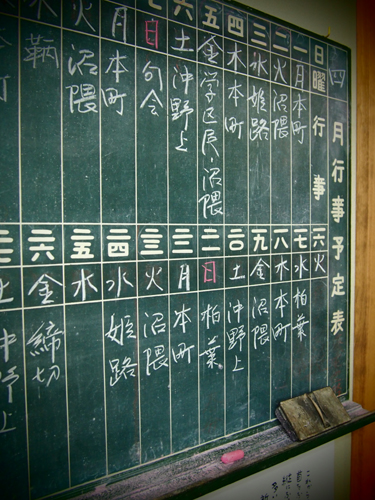 四月行事予定表
日 曜 行事
一 月 本町
二 火 沼隈
三 水 姫路
四 木 本町
五 金 学区民・沼隈
六 土 沖野上
七 日 句会
月 本町
火 沼隈
水 鞆
一六 火
一七 水 柏葉
一八 木 本町
一九 金 沼隈
二〇 土 沖野上
二一 日 柏葉
二二 月 本町
二三 火 沼隈
二四 水 姫路
二五 木
二六 金 締切
二七 土 沖野上